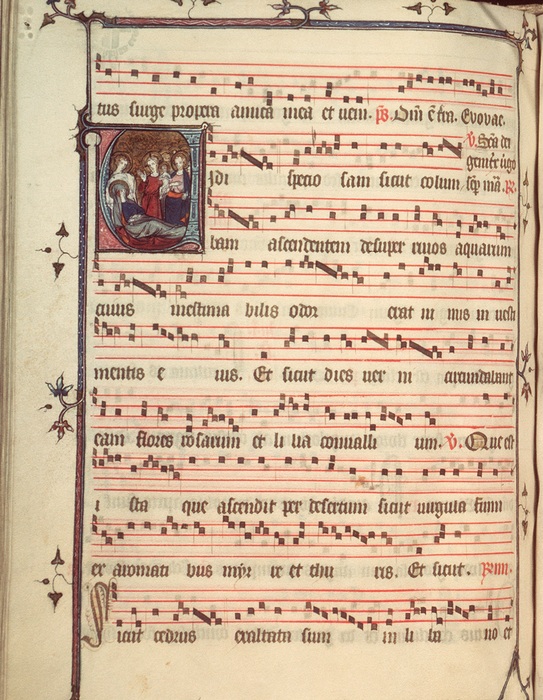 tus surge propera amica mea et ueni. ps. Dni est tra. Evovae.
V. Sca dei
genitrix uigo
sep mia. R.
Vidi specio sam sicut colum
bam ascendentem desuper riuos aquarum
cuius inestima bilis odor erat ni mis in uesti
mentis e ius. Et sicut dies uer ni circumdabant
eam flores rosarum et li lia conualli um. V. Que est
i sta que ascendit per desertum sicut uirgula fumi
ex aromati bus mirr e et thu ris. Et sicut. Prim.
Sicut cedrus exaltata sum in li ba no et